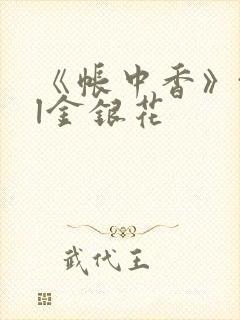 《帐中香》
|金银花
武代王